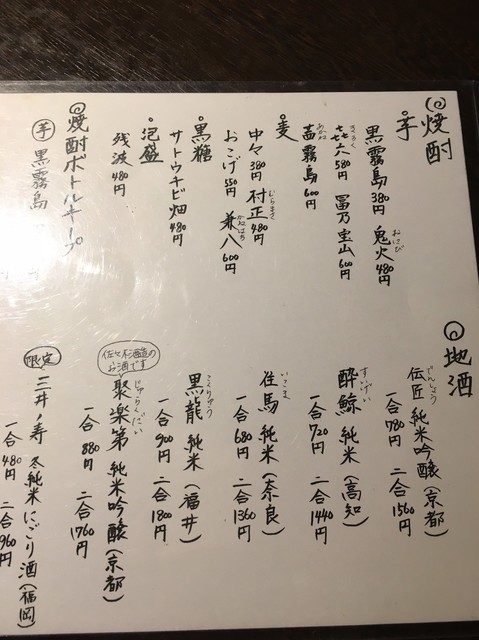 焼酎
・芋
黒霧島 380円 鬼火 480円
おにび
㐂六 580円 冨乃宝山 600円
きろく
茜霧島 600円
あかね
・麦
中々 380円 村正 480円
むらまさ
おこげ 550円 兼八 600円
かねはち
・黒糖
サトウキビ畑 480円
・泡盛
残波 480円
焼酎ボトルキープ
芋 黒霧島
地酒
伝匠 純米吟醸(京都)
でんしょう
一合 780円 二合 1560円
酔鯨 純米(高知)
すいげい
一合 720円 二合 1440円
往馬 純米(奈良)
いこま
一合 680円 二合 1360円
黒龍 純米(福井)
こくりゅう
一合 900円 二合 1800円
佐々木酒造のお酒です
聚楽第 純米吟醸(京都)
じゅらくだい
一合 880円 二合 1760円
限定 三井ノ寿 冬純米にごり酒(福岡)
一合 480円 二合 960円